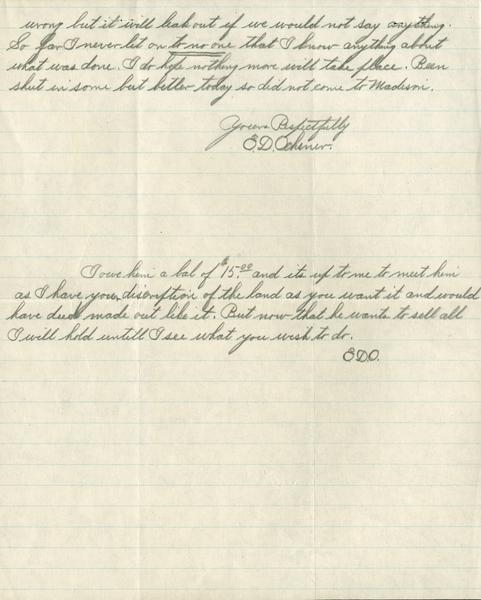 wrong but it will leak out if we would not say anything.
So far I never let on to no one that I know anything about
what was done. I do hope nothing more will take place. Been
shut in some but better today so did not come to Madison.
Yours Respectfully
E.D. Ochsner.
I owe him a bal of $15.00 and its up to me to meet him
as I have your discription of the land as you want it and would
have deed made out like it. But now that he wants to sell all
I will hold untill I see what you wish to do.
E.D.O.